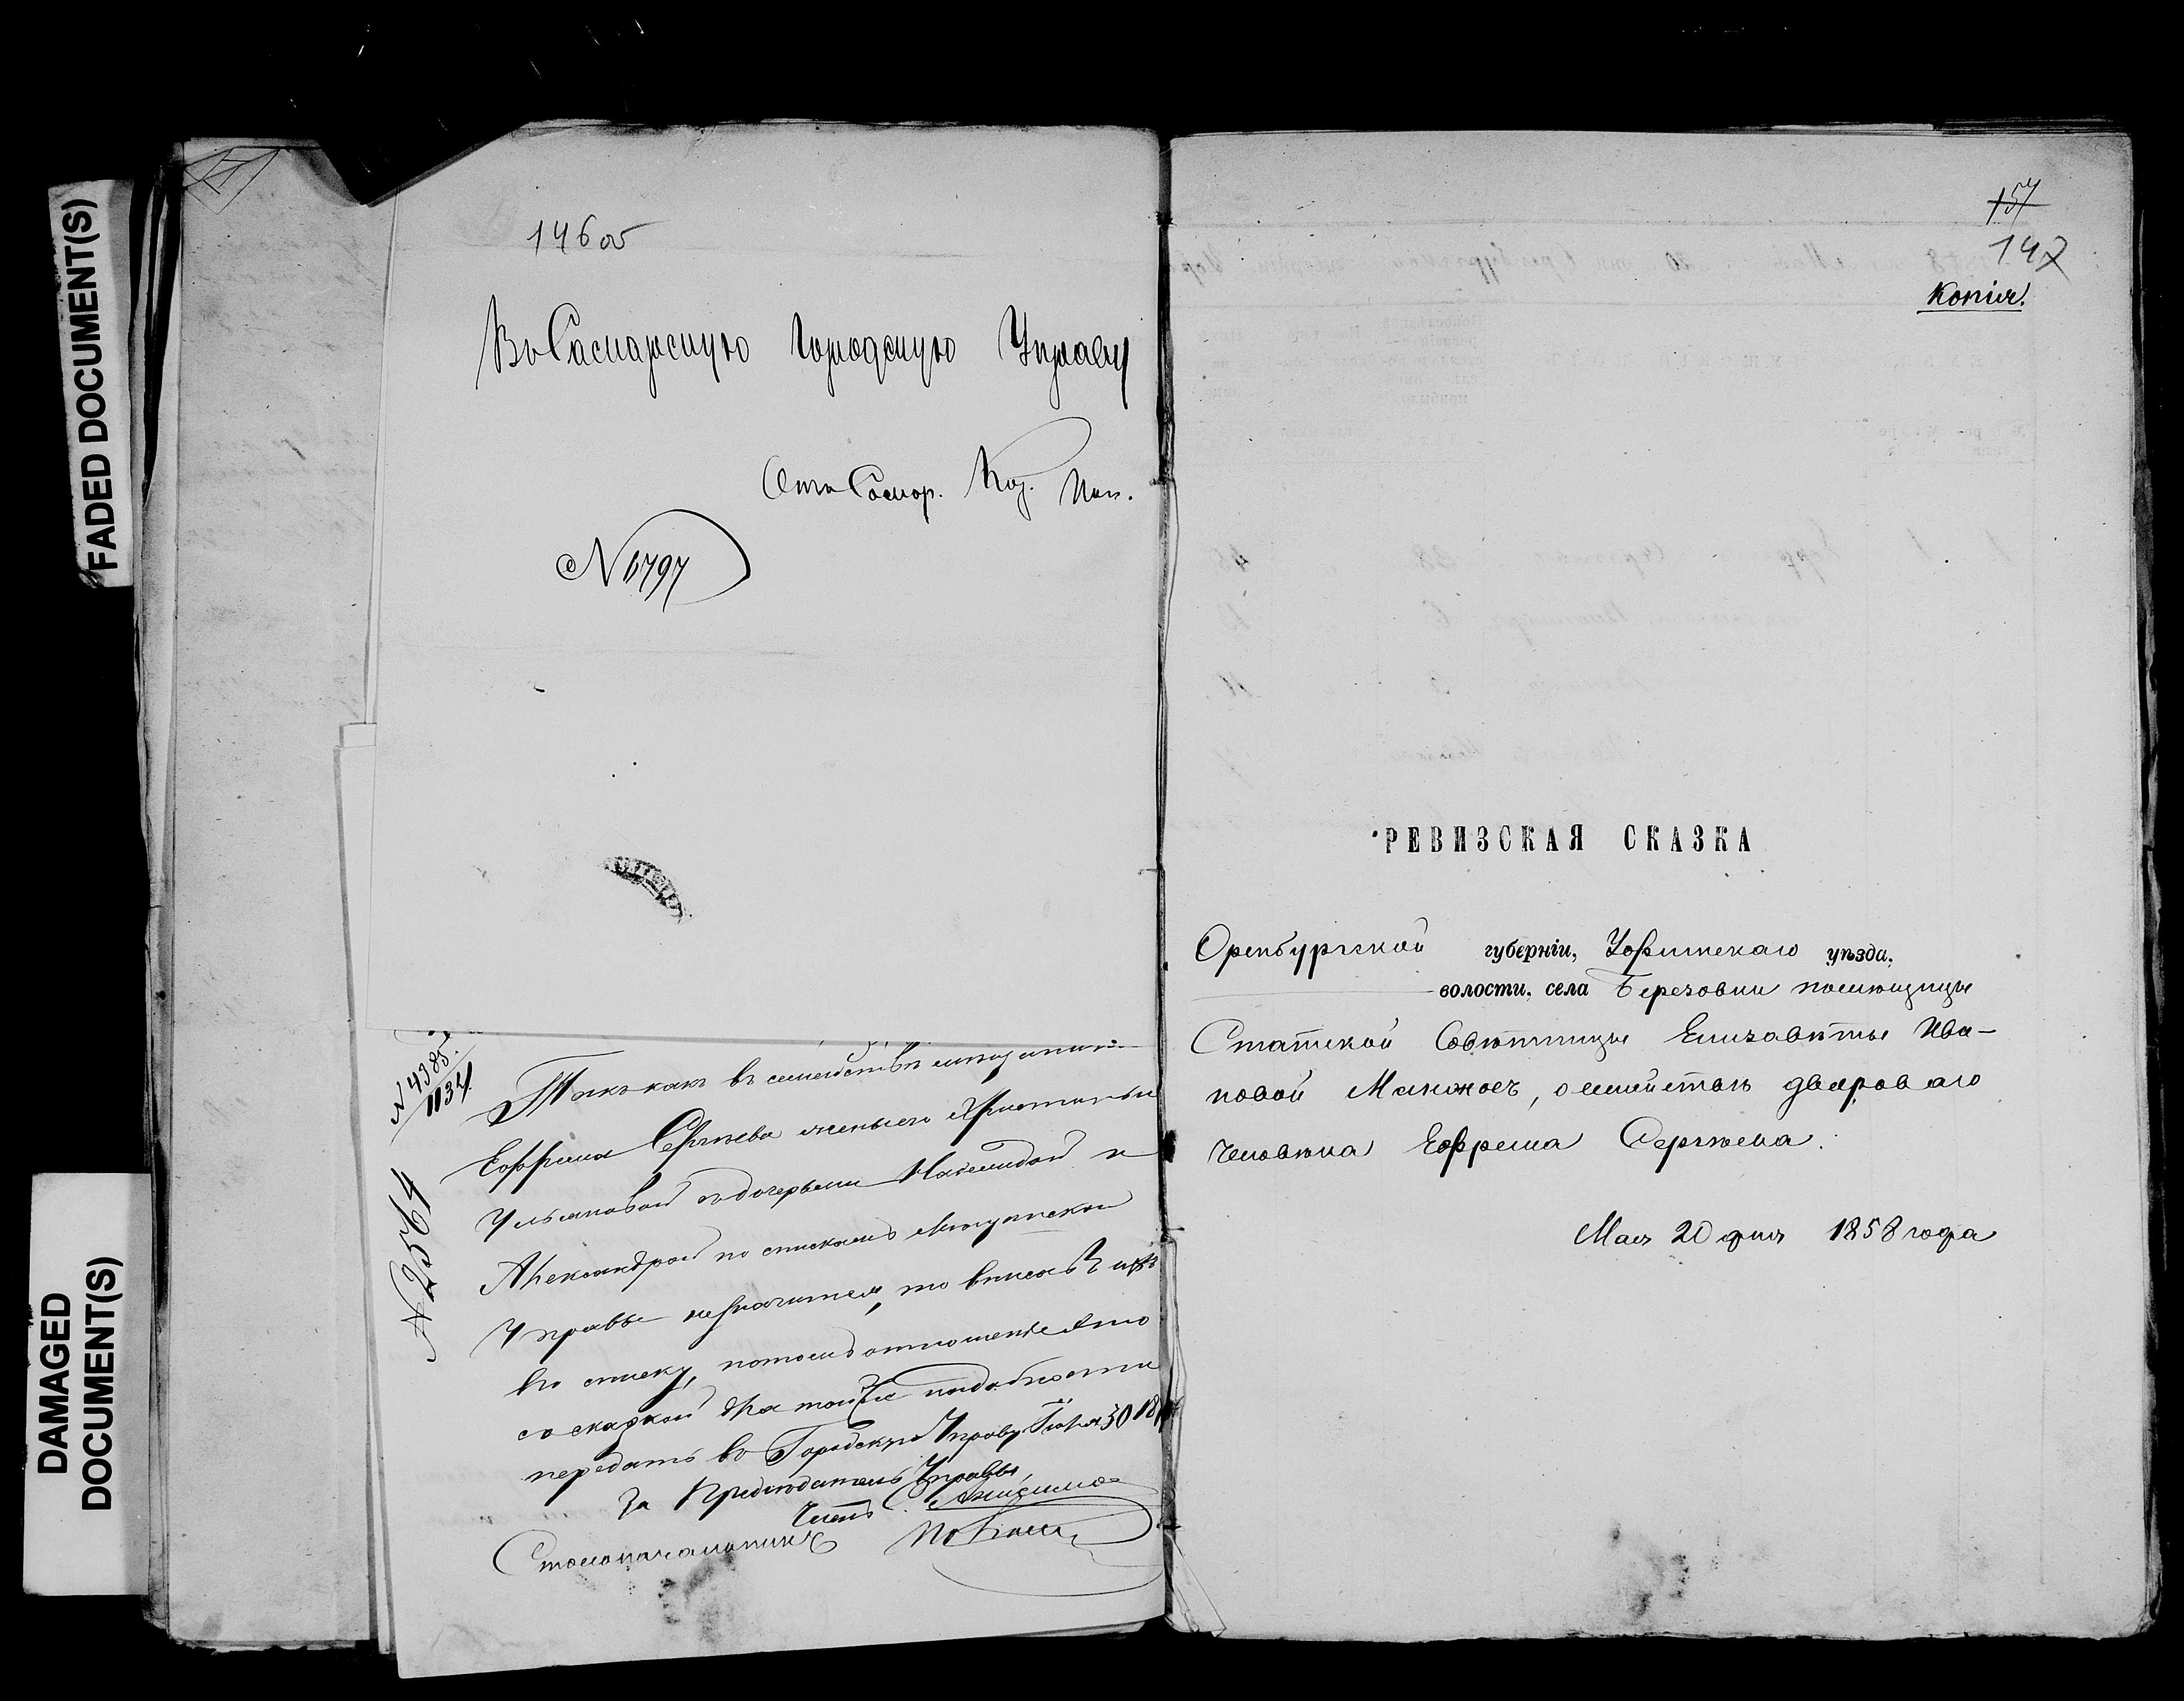 FADED DOCUMENT(S)
DAMAGED
DOCUMENT(S)
146об
Въ Самарскую Городскую Управу
Отъ Самар. Каз. Пал.
№ 6797
№ 4385
1134
№ 2564
Такъ какъ въ семействѣ мѣщанина
Ефрема Сергѣева жены его Христиньи
Ульяновой съ дочерьми и
Александрой по спискамъ Мещанской
Управы не значится, то вписать ихъ
въ потомъ отношеніе это
со сказкой для той же надобности
передать въ Городскую Управу Іюля 30 18
За Предсѣдатель Управы,
Членъ
Столоначальникъ
157
147
Копія.
РЕВИЗСКАЯ СКАЗКА
Оренбургской губерніи, Уфимскаго уѣзда,
волости, села Березовки помѣщицы
Статской Совѣтницы Елизаветы Ива-
новой , о семействѣ двороваго
человѣка Ефрема Сергѣева.
Мая 20 дня 1858 года